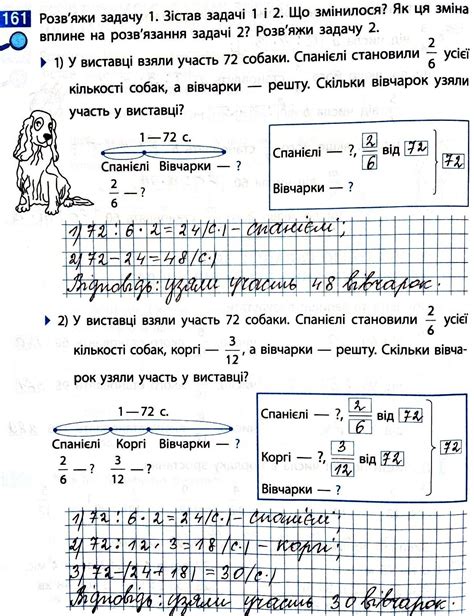 161 Розв'яжи задачу 1. Зістав задачі 1 і 2. Що змінилося? Як ця зміна
вплине на розв'язання задачі 2? Розв'яжи задачу 2.
1) У виставці взяли участь 72 собаки. Спанієлі становили 2/6 усієї
кількості собак, а вівчарки — решту. Скільки вівчарок узяли
участь у виставці?
1—72 с.
Спанієлі Вівчарки — ?
2/6 — ?
Спанієлі — ?, 2/6 від 72
Вівчарки — ?
72
1) 72 : 6 · 2 = 24 (с.) - спанієлі;
2) 72 - 24 = 48 (с.)
Відповідь: узяли участь 48 вівчарок.
2) У виставці взяли участь 72 собаки. Спанієлі становили 2/6 усієї
кількості собак, коргі — 3/12, а вівчарки — решту. Скільки вівча-
рок узяли участь у виставці?
1—72 с.
Спанієлі Коргі Вівчарки — ?
2/6 — ? 3/12 — ?
Спанієлі — ?, 2/6 від 72
Коргі — ?, 3/12 від 72
Вівчарки — ?
72
1) 72 : 6 · 2 = 24 (с.) - спанієлі;
2) 72 : 12 · 3 = 18 (с.) - коргі;
3) 72 - (24 + 18) = 30 (с.)
Відповідь: узяли участь 30 вівчарок.